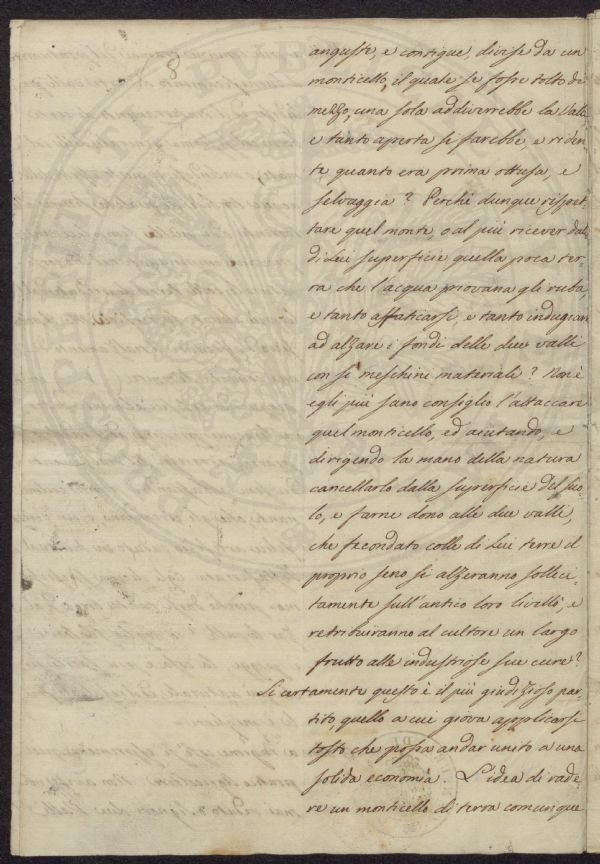 8
anguste, e contigue, divise da un
monticello, il quale se fosse tolto di
mezzo, una sola addiverrebbe la Valle
e tanto aperta si farebbe, e riden
te quanto era prima ottusa, e
selvaggia? Perchè dunque rispet
tare quel monte, o al più ricever dalla
di Lui superficie quella poca ter
ra che l'acqua piovana gli ruba,
e tanto affaticarsi, e tanto indugiar
ad alzare i fondi delle due valli
con sì meschini materiali? Non è
egli più sano consiglio l'attaccare
quel monticello, ed aiutando, e
dirigendo la mano della natura
cancellarlo dalla superficie del suo
lo, e farne dono alle due valli,
che fecondato colle di Lui terre il
proprio seno si alzeranno solleci
tamente sull'antico loro livello, e
retribuiranno al cultore un largo
frutto alle industriose sue cure?
Si certamente questo è il più giudizioso par
tito, quello a cui giova applicarsi
tosto che possa andar unito a una
solida economia. L'idea di rade
re un monticello di terra comunque